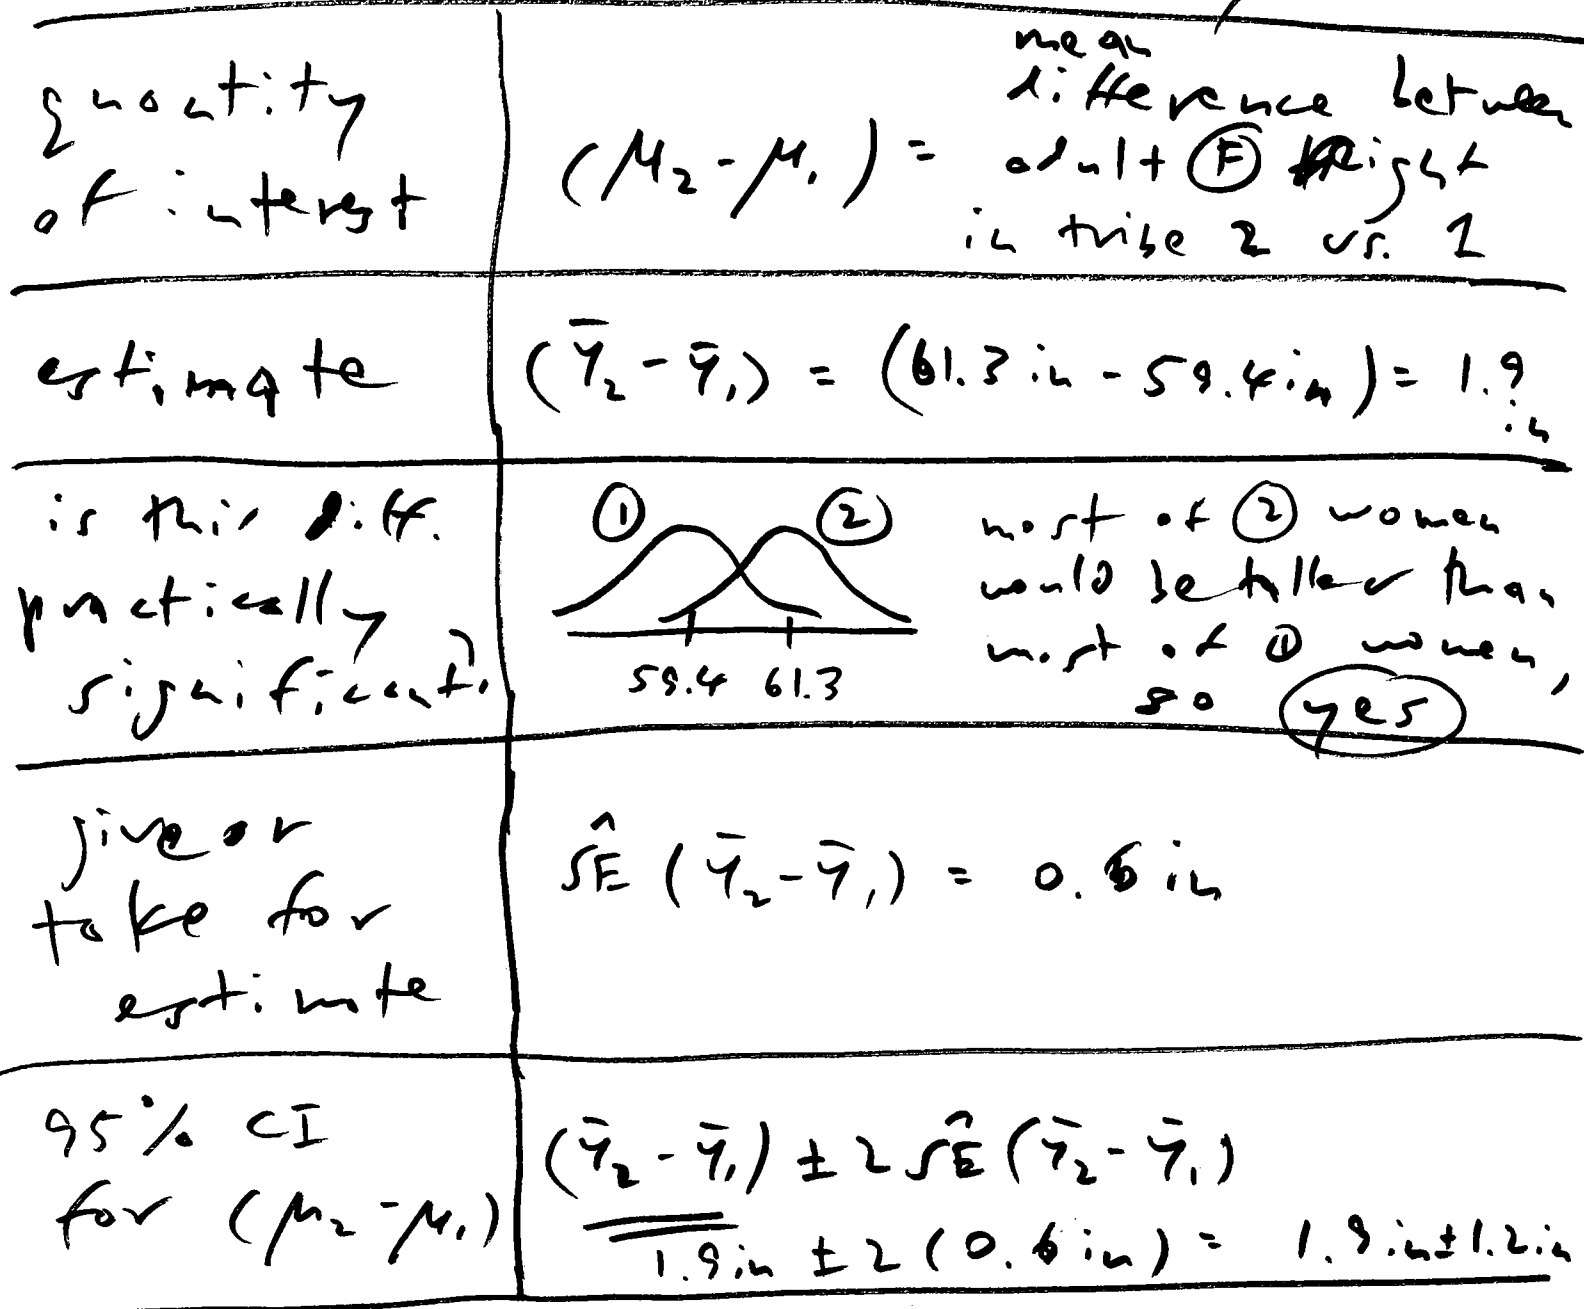 quantity
of interest
(μ₂ - μ₁) =
mean
difference between
adult Ⓕ height
in tribe 2 vs. 1
estimate
(Ȳ₂ - Ȳ₁) = (61.3 in - 59.4 in) = 1.9
in
is this diff.
practically
significant?
① ②
59.4 61.3
most of ② women
would be taller than
most of ① women,
so yes
give or
take for
estimate
SÊ (Ȳ₂ - Ȳ₁) = 0.6 in
95% CI
for (μ₂ - μ₁)
(Ȳ₂ - Ȳ₁) ± 2 SÊ (Ȳ₂ - Ȳ₁)
1.9 in ± 2 (0.6 in) = 1.9 in ± 1.2 in